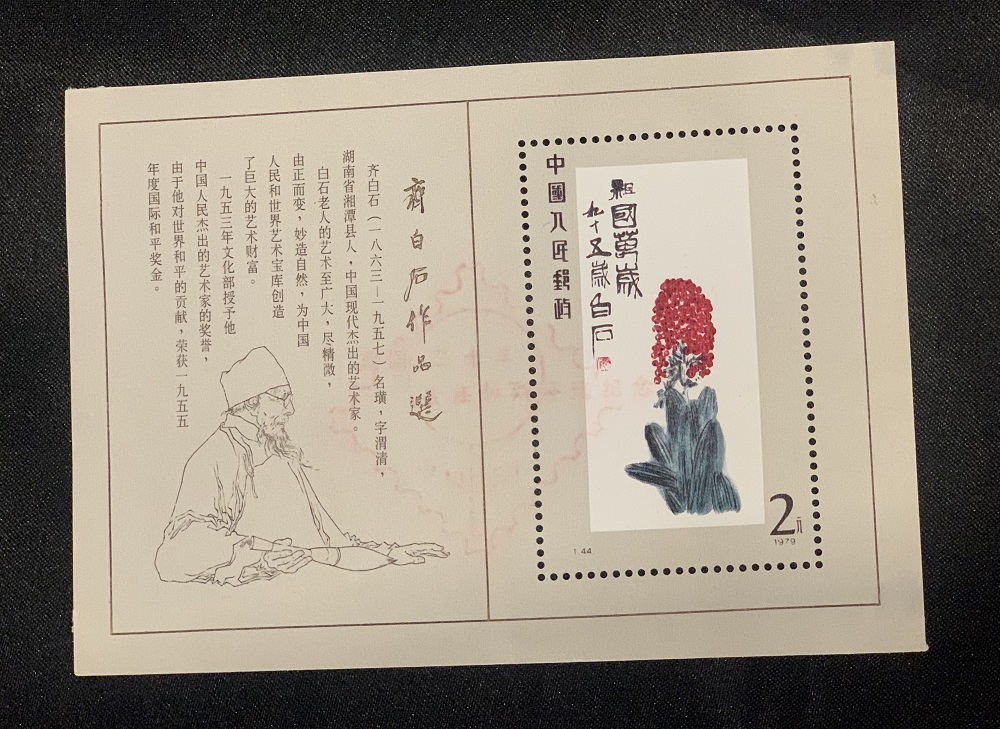 齊白石作品選
齐白石（一八六三—一九五七）名璜，字渭清，
湖南省湘潭县人，中国现代杰出的艺术家。
白石老人的艺术至广大，尽精微，
由正而变，妙造自然，为中国
人民和世界艺术宝库创造
了巨大的艺术财富。
一九五三年文化部授予他
中国人民杰出的艺术家的奖誉，
由于他对世界和平的贡献，荣获一九五五
年度国际和平奖金。
中國人民郵政
祖國萬歲
九十五歲白石
T.44
2元
1979